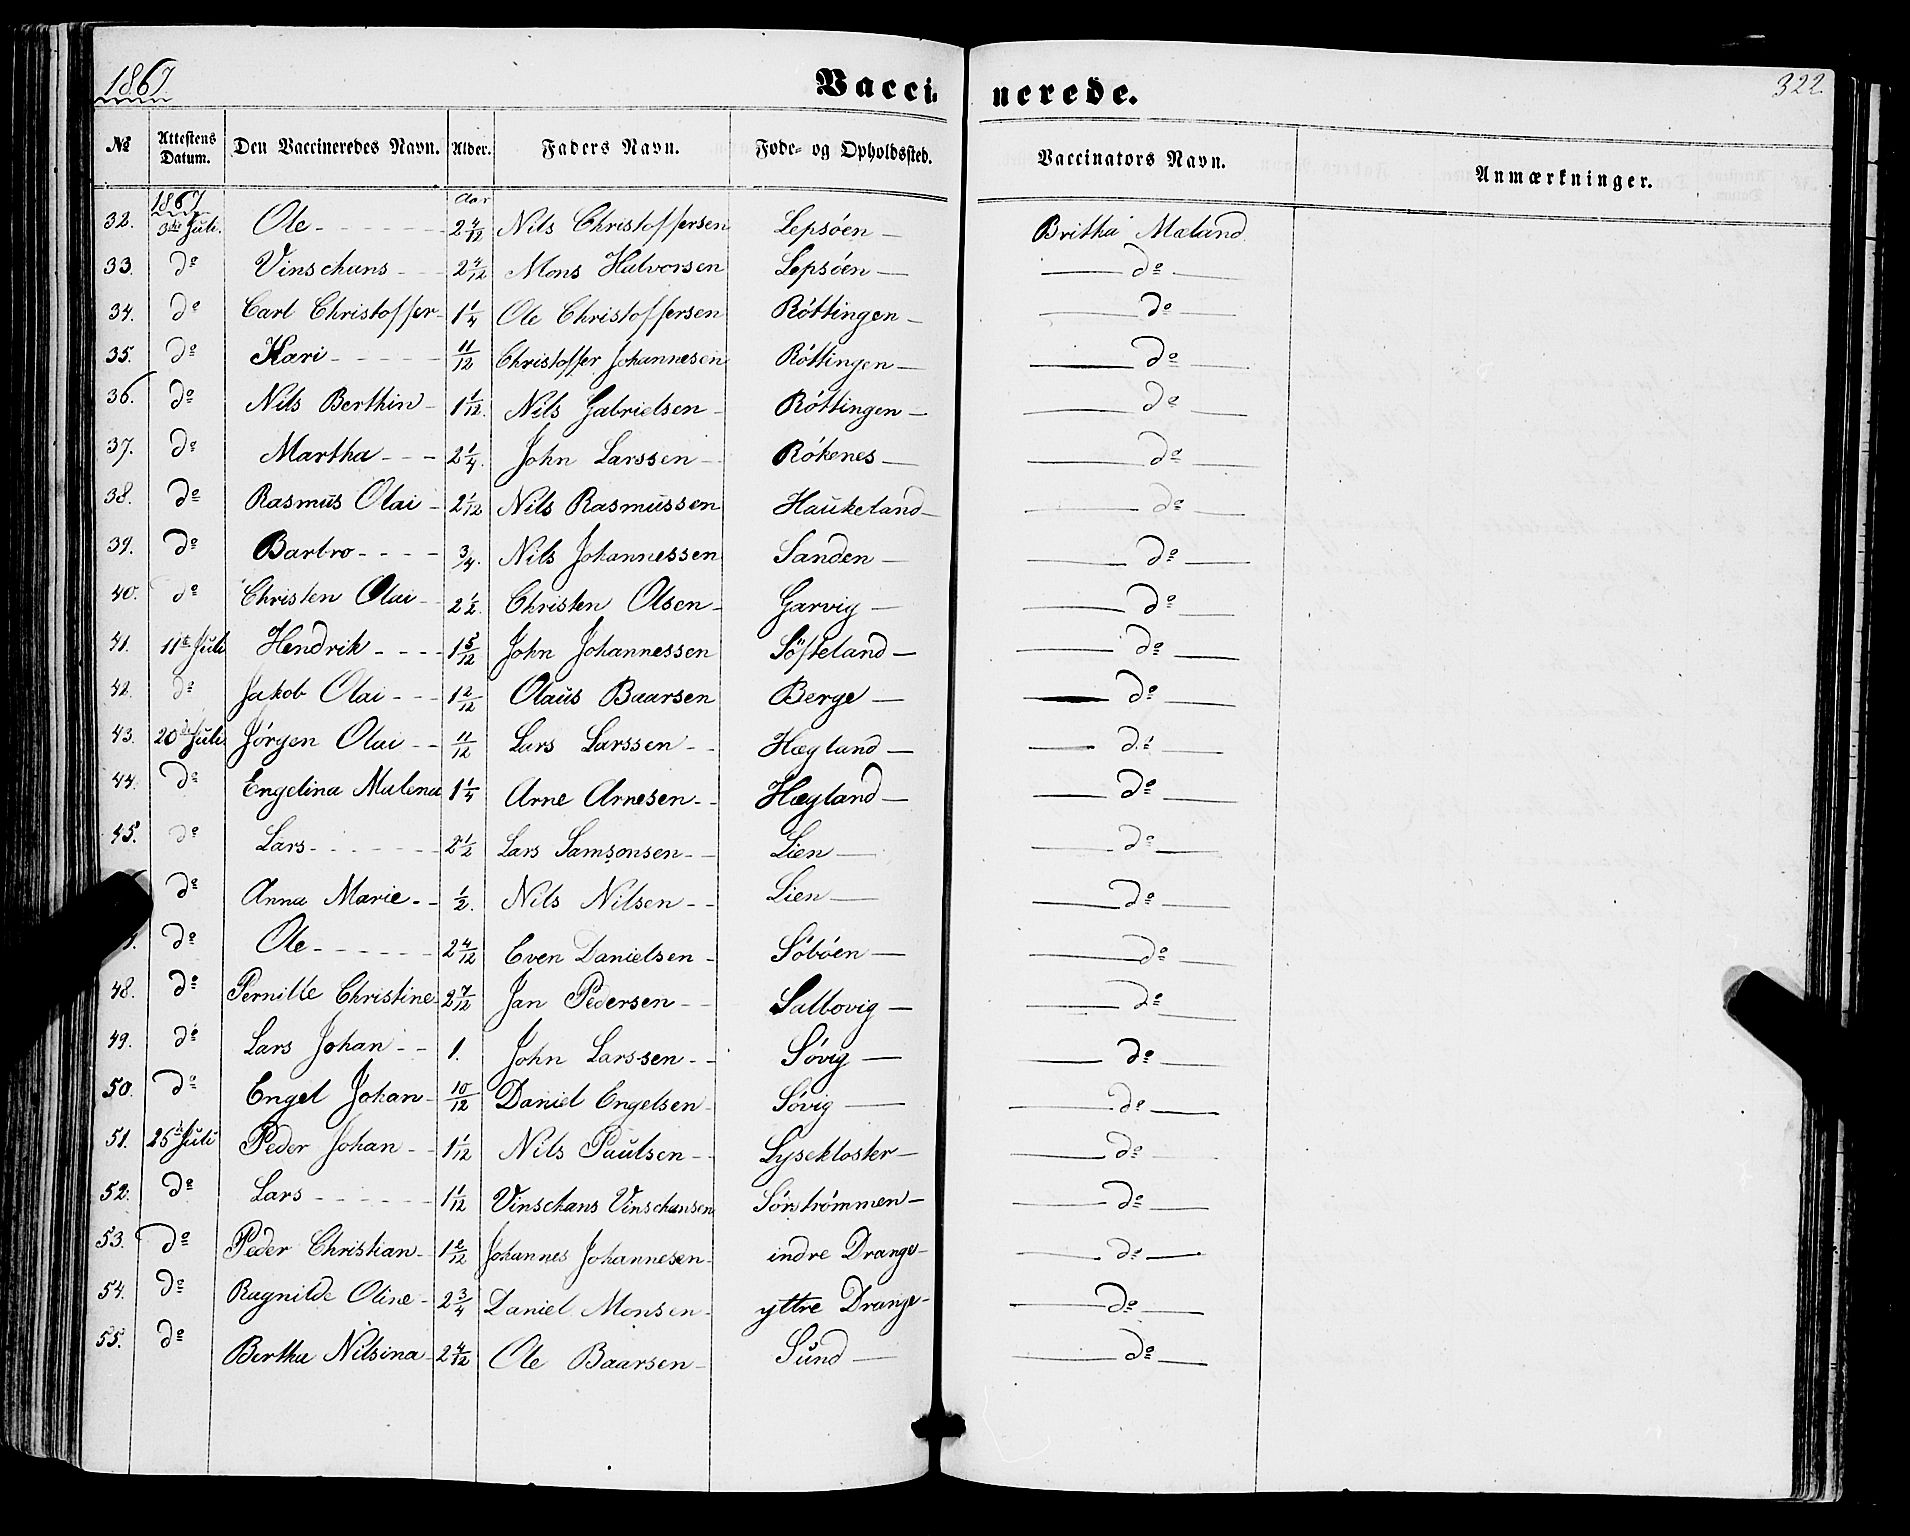 1867.
Vacci- nerede.
322.
No Attestens Datum. Den Vaccineredes Navn. Alder. Faders Navn. Føde- og Opholdssted. Vaccinators Navn. Anmærkninger.
1867 Aar
32. 3die Juli. Ole - 2 4/12 Nils Christoffersen Lepsöen - Britha Mæland
33. do Vinschans - 2 4/12 Mons Halvorsen Lepsöen - do
34. do Carl Christoffer - 1 1/4 Ole Christoffersen Röttingen - do
35. do Kari - 11/12 Christoffer Johannesen Röttingen - do
36. do Nils Berthin - 1 1/12. Nils Gabrielsen - Röttingen - do
37. do Martha - 2 1/4. John Larssen - Rökenes - do
38. do Rasmus Olai - 2 1/12 Nils Rasmussen Haukeland - do
39. do Barbro - 3/4. Nils Johannessen Sanden - do
40. do Christen Olai - 2 1/2. Christen Olsen - Garvig - do
41. 11te Juli Hendrik - 1 5/12 John Johannessen Söfteland - do
42. do Jakob Olai - 1 2/12 Olaus Baarsen Berge - do
43. 20de Juli Jörgen Olai - 11/12 Lars Larssen - Hægland - do
44. do Engelina Malena 1 1/4 Arne Arnesen - Hægland - do
45. do Lars - 2 1/2 Lars Samsonsen - Lien - do
do Anna Marie - 1/2. Nils Nilsen - Lien - do
do Ole - 2 4/12 Even Danielsen - Söböen - do
48. do Pernille Christine 2 7/12 Jan Pedersen - Salbovig - do
49. do Lars Johan - 1. John Larssen - Sövig - do
50. do Engel Johan - 10/12 Daniel Engelsen - Sövig - do
51. 25de Juli Peder Johan - 1 1/12 Nils Paulsen - Lysekloster - do
52. do Lars - 1 1/12 Vinschans Vinschansen Sörströmmen - do
53. do Peder Christian - 1 2/12 Johannes Johannesen - indre Drange - do
54. do Ragnilde Oline - 2 3/4 Daniel Monsen - yttre Drange - do
55. do Bertha Nilsina - 2 4/12 Ole Baarsen - Sund - do